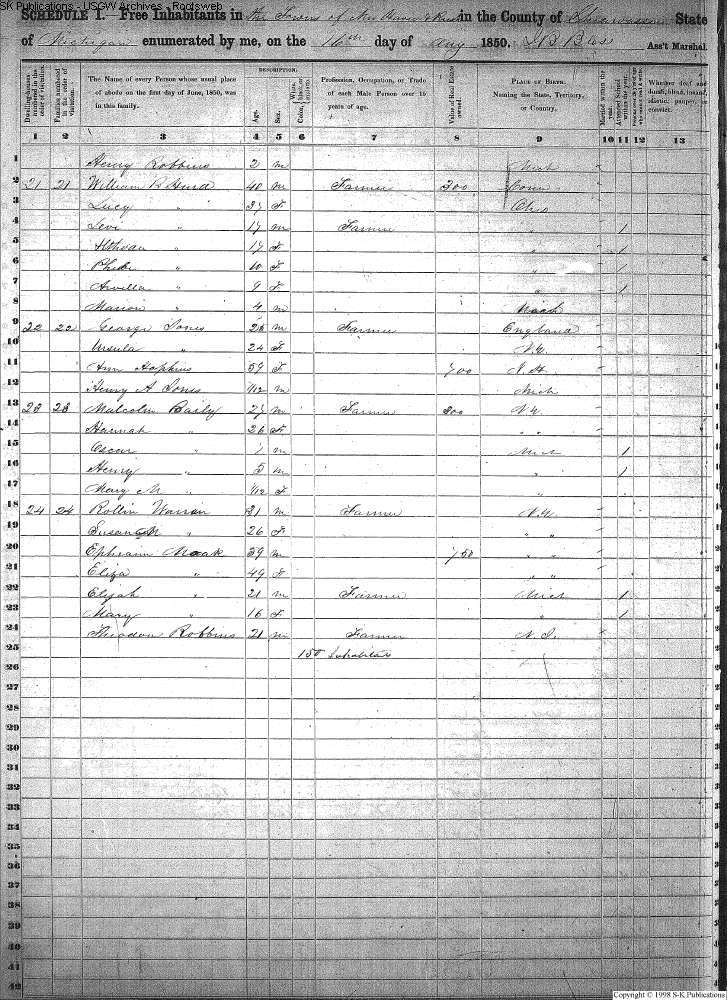 SK Publications - USGW Archives - Rootsweb
SCHEDULE I.—Free Inhabitants in the Towns of New in the County of Shiawassee State
of Michigan enumerated by me, on the 16th day of Aug 1850. Ass't Marshal.
DESCRIPTION.
Dwelling-houses numbered in the order of visitation. Families numbered in the order of visitation. The Name of every Person whose usual place of abode on the first day of June, 1850, was in this family. Age. Sex. Color, White, black, or mulatto. Profession, Occupation, or Trade of each Male Person over 15 years of age. Value of Real Estate owned. PLACE OF BIRTH. Naming the State, Territory, or Country. Married within the year. Attended School within the year. Whether deaf and dumb, blind, insane, idiotic, pauper, or convict.
1 2 3 4 5 6 7 8 9 10 11 12 13
1 Henry Robbins 2 m Mich
2 21 21 William B Hurd 40 m Farmer 300 Conn
3 Lucy " 37 F Ohio
4 Levi " 17 m Farmer " 1
5 " 17 F " 1
6 Phebe " 10 F " 1
7 Arvilla " 9 F " 1
8 Marion " 4 m Mich
9 22 22 George Jones m Farmer England
10 Ursula " 24 F N.Y.
11 Ann Hopkins 59 F 700 N.H.
12 Henry A Jones /12 m Mich
13 23 23 Malcolm Baily 27 m Farmer 800 N.Y.
14 Hannah " 26 F " "
15 Oscar " 7 m Mich 1
16 Henry " 5 m " 1
17 Mary M " /12 F "
18 24 24 Rollin Warren 31 m Farmer N.Y.
19 Susan M " 26 F " "
20 Ephraim Moak 59 m 750 " "
21 Eliza " 49 F " "
22 Elijah " 21 m Farmer Mich 1
23 Mary " 16 F " 1
24 Theodore Robbins 21 m Farmer N.J.
25 150 Inhabitants
26
27
28
29
30
31
32
33
34
35
36
37
38
39
40
41
42
Copyright © 1998 S-K Publications